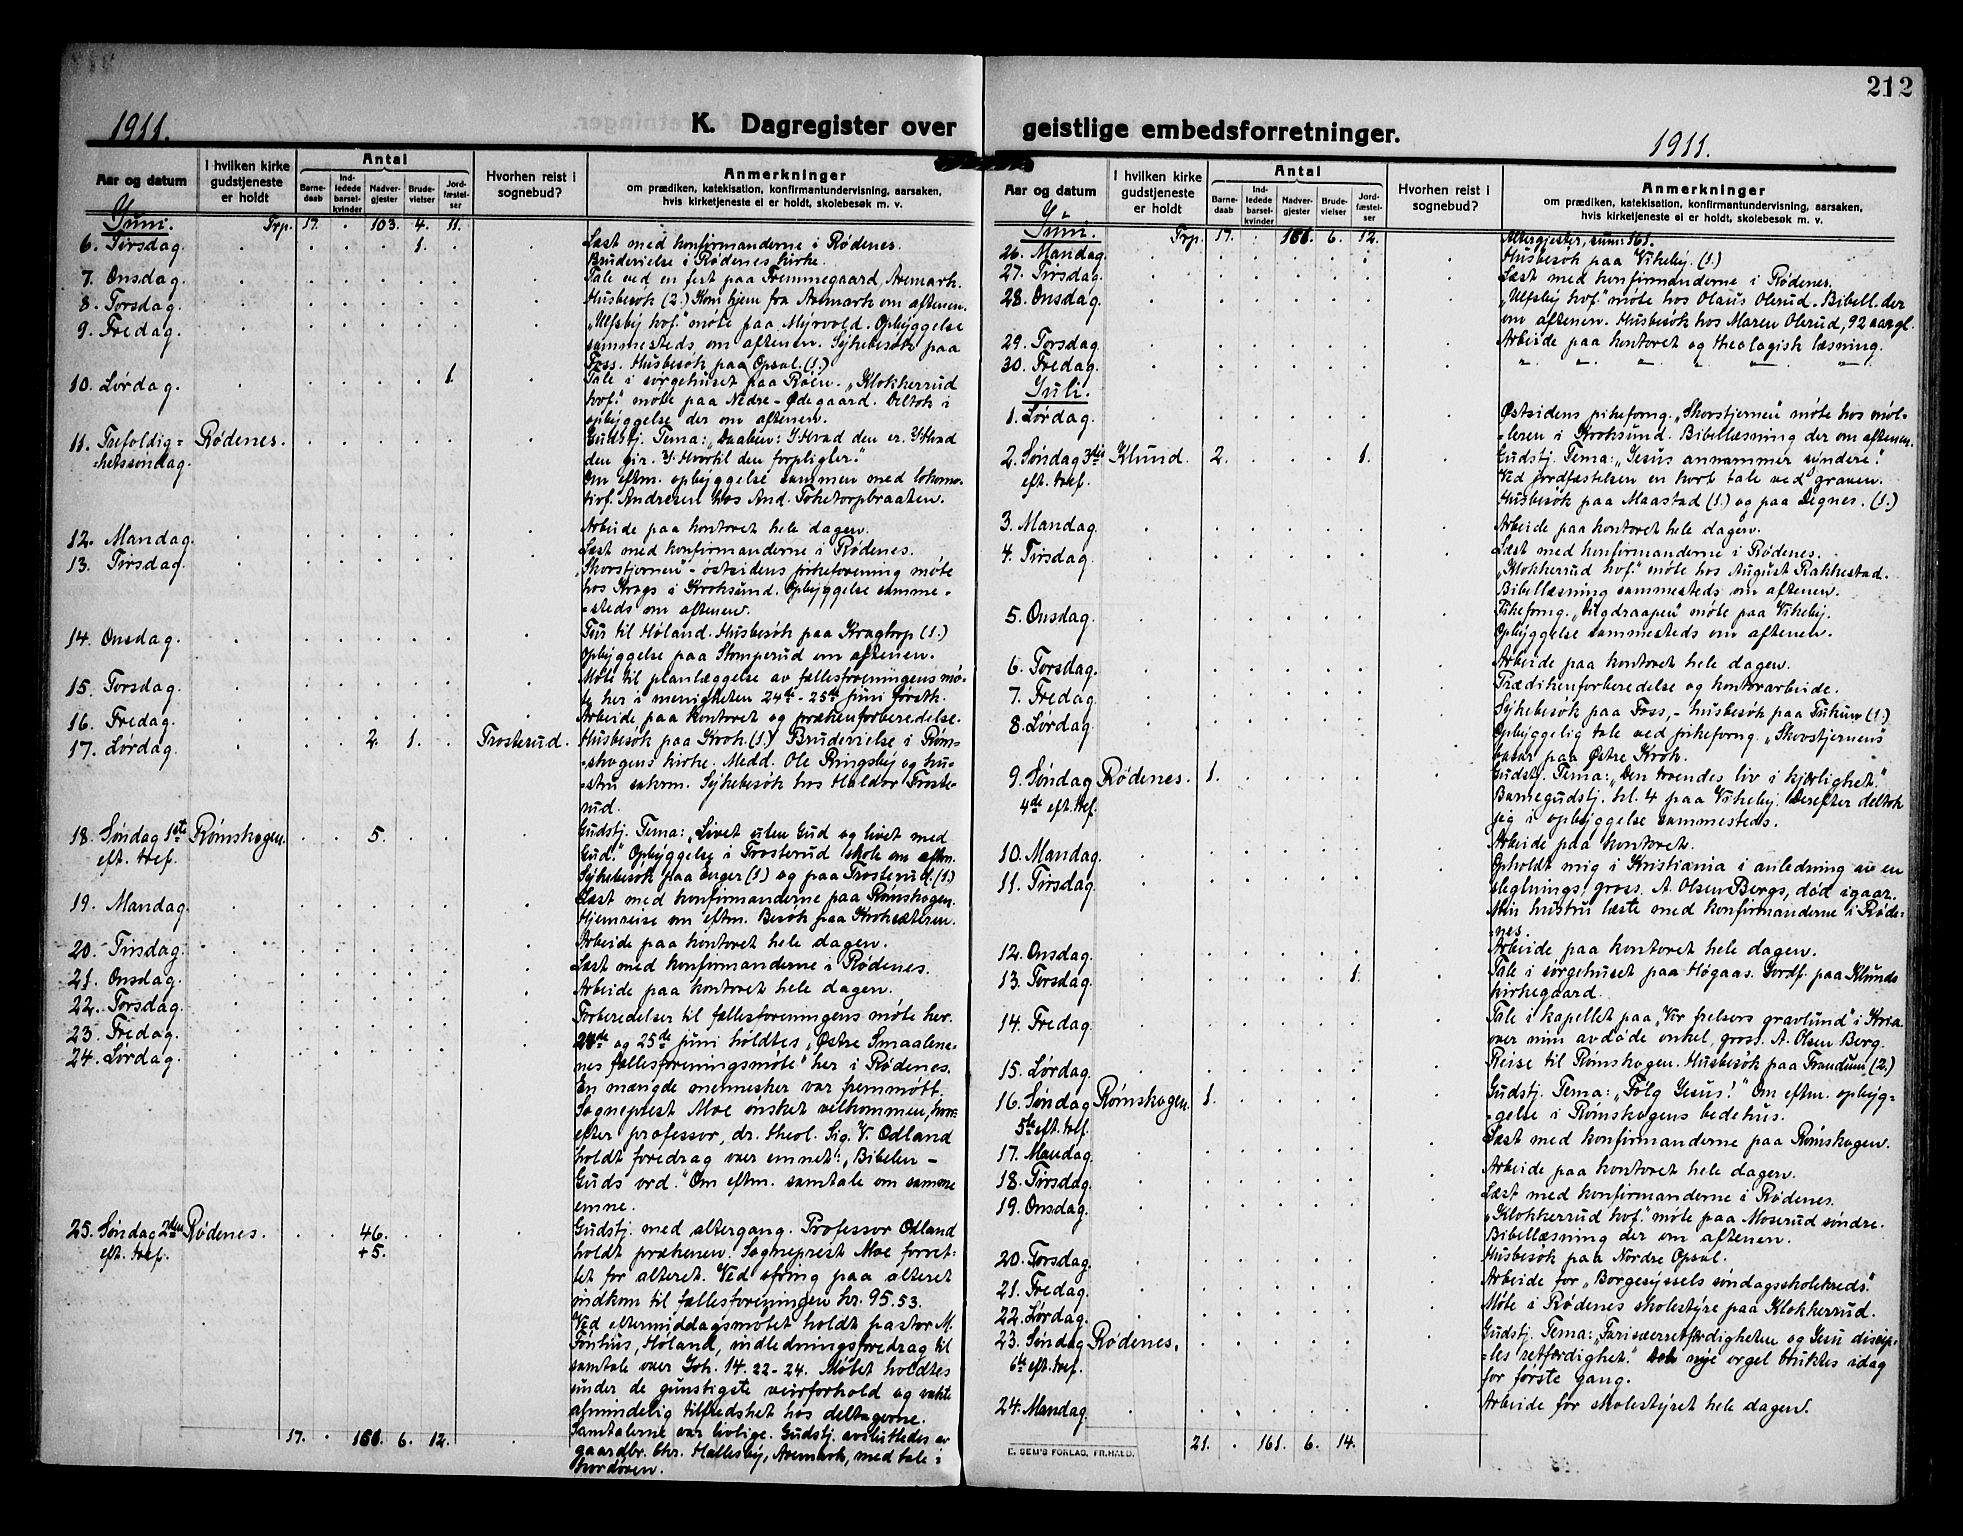 212
1911.
K. Dagregister over
Aar og datum
I hvilken kirke gudstjeneste er holdt
Antal
Barnedaab
Indledede barselkvinder
Nadvergjester
Brudevielser
Jordfæstelser
Hvorhen reist i sognebud?
Anmerkninger
om prædiken, katekisation, konfirmantundervisning, aarsaken,
hvis kirketjeneste ei er holdt, skolebesøk m. v.
Juni. Trp. 17. 103. 4. 11.
6. Tirsdag. 1. Læst med konfirmanderne i Rødenes.
Brudevielse i Rødenes kirke.
7. Onsdag. Tale ved en fest paa Fremmegaard, Aremark.
8. Torsdag. Husbesøk (2.) Kom hjem fra Aremark om aftenen.
9. Fredag. „Ulfsby kof." møte paa Myrvold. Opbyggelse
sammesteds om aftenen. Sykebesøk paa
Foss. Husbesøk paa Opsal. (1.)
10. Lørdag. 1. Tale i sørgehuset paa Røen. „Klokkerrud
kof." møte paa Nedre-Ødegaard. Deltok i
opbyggelse der om aftenen.
11. Trefoldig= Rødenes. Gudstj. Tema: „Daaben: 1. Hvad den er. 2. Hvad
=hetssøndag. den gir. 3. Hvortil den forpligter."
Om eftm. opbyggelse sammen med lokomo-
tivf. Andresen hos And. Toketorpbraaten.
12. Mandag. Arbeide paa kontoret hele dagen.
13. Tirsdag. Læst med konfirmanderne i Rødenes.
„Skovstjernen" - østsidens pikeforening møte
hos Krogs i Kroksund. Opbyggelse samme-
-steds om aftenen.
14. Onsdag. Tur til Høland. Husbesøk paa Kragtorp (1.)
Opbyggelse paa Stomperud om aftenen.
15. Torsdag. Møte til planlæggelse av fællesforeningens mø-
te her i menigheten 24de - 25de juni førstk.
16. Fredag. Arbeide paa kontoret og prækenforberedelse.
17. Lørdag. 2. 1. Trosterud. Husbesøk paa Krok. (1.) Brudevielse i Røm-
-skogens kirke. Medd. Ole Ringsby og hu-
-stru sakrm. Sykebesøk hos Haldor Troste-
rud.
18. Søndag 1ste Rømskogen. 5. Gudstj. Tema: „Livet uten Gud og livet med
eft. tref. Gud." Opbyggelse i Trosterud skole om eftm.
Sykebesøk paa Enger (1.) og paa Trosterud. (1.)
19. Mandag. Læst med konfirmanderne paa Rømskogen.
Hjemreise om eftm. Besøk paa Kroksæteren.
20. Tirsdag. Arbeide paa kontoret hele dagen.
21. Onsdag. Læst med konfirmanderne i Rødenes.
22. Torsdag. Arbeide paa kontoret hele dagen.
23. Fredag. Forberedelser til fællesforeningens møte her.
24. Lørdag. 24de og 25de juni holdtes „Østre Smaalene-
nes fællesforeningsmøte" her i Rødenes.
En mængde mennesker var fremmøtt.
Sogneprest Moe ønsket velkommen, hvor-
efter professor, dr. theol. Sig. V. Odland
holdt foredrag over emnet: „Bibelen -
Guds ord." Om eftm. samtale om samme
emne.
25. Søndag 2den Rødenes. 46. Gudstj. med altergang. Professor Odland
eft. tref. +5. holdt prækenen. Sogneprest Moe forret-
tet for alteret. Ved ofring paa alteret
indkom til fællesforeningen kr. 95.53.
Ved eftermiddagsmøtet holdt pastor M.
Høland, indledningsforedrag til
samtale over Joh. 14. 22-24. Møtet holdtes
under de gunstigste veirforhold og vakte
almindelig tilfredshet hos deltagerne.
Samtalerne var livlige. Gudstj. avsluttedes av
gaardbr. Hallesby, Aremark, med tale i
kordøren.
17. 161. 6. 12.
geistlige embedsforretninger.
1911.
Aar og datum
I hvilken kirke gudstjeneste er holdt
Antal
Barnedaab
Indledede barselkvinder
Nadvergjester
Brudevielser
Jordfæstelser
Hvorhen reist i sognebud?
Anmerkninger
om prædiken, katekisation, konfirmantundervisning, aarsaken,
hvis kirketjeneste ei er holdt, skolebesøk m. v.
Juni. Trp. 17. 161. 6. 12. Altergjester, sum: 161.
26. Mandag. Husbesøk paa Vikeby. (1.)
27. Tirsdag. Læst med konfirmanderne i Rødenes.
28. Onsdag. „Ulfsby kof." møte hos Olaus Olerud. Bibell. der
om aftenen. Husbesøk hos Maren Olerud, 92 aar gl.
29. Torsdag. Arbeide paa kontoret og theologisk læsning.
30. Fredag. „ „ „ „ „ „
Juli.
1. Lørdag. Østsidens pikeforng. „Skovstjernen" møte hos møl-
-leren i Kroksund. Bibellæsning der om aftenen.
2. Søndag 3die Klund. 2. 1. Gudstj. Tema: „Jesus annammer syndere."
eft. tref. Ved jordfæstelsen en kort tale ved graven.
Husbesøk paa Maastad (1.) og paa Degnes. (1.)
3. Mandag. Arbeide paa kontoret hele dagen.
4. Tirsdag. Læst med konfirmanderne i Rødenes.
„Klokkerrud kof." møte hos August Rakkestad.
Bibellæsning sammesteds om aftenen.
5. Onsdag. Pikeforng. „Dugdraapen" møte paa Vikeby.
Opbyggelse sammesteds om aftenen.
6. Torsdag. Arbeide paa kontoret hele dagen.
7. Fredag. Prædikenforberedelse og kontorarbeide.
8. Lørdag. Sykebesøk paa Foss, - husbesøk paa Tukun (1.)
Opbyggelig tale ved pikeforng. „Skovstjernens"
basar paa Østre Krok.
9. Søndag Rødenes. 1. Gudstj. Tema: „Den troendes liv i kjærlighet."
4de eft. tref. Barnegudstj. kl. 4 paa Vikeby. Derefter deltok
jeg i opbyggelse sammesteds.
10. Mandag. Arbeide paa kontoret.
11. Tirsdag. Opholdt mig i Kristiania i anledning av en
slegtnings, gross. A. Olsen Bergs, død igaar.
Min hustru læste med konfirmanderne i Røde-
nes.
12. Onsdag. Arbeide paa kontoret hele dagen.
13. Torsdag. 1. Tale i sørgehuset paa Høgaas. Jordf. paa Klunds
kirkegaard.
14. Fredag. Tale i kapellet paa „Vor frelsers gravlund" i Kr.a.
over min avdøde onkel, gross. A. Olsen Berg.
15. Lørdag. Reise til Rømskogen. Husbesøk paa Trandum (2.)
16. Søndag Rømskogen. 1. Gudstj. Tema: „Følg Jesus!" Om eftm. opbyg-
5te eft. tref. -gelse i Rømskogens bedehus.
17. Mandag. Læst med konfirmanderne paa Rømskogen.
18. Tirsdag. Arbeide paa kontoret hele dagen.
19. Onsdag. Læst med konfirmanderne i Rødenes.
„Klokkerrud kof." møte paa Moserud søndre.
Bibellæsning der om aftenen.
20. Torsdag. Husbesøk paa Nordre Opsal.
21. Fredag. Arbeide for „Borgesyssels søndagsskolekreds."
22. Lørdag. Møte i Rødenes skolestyre paa Klokkerrud.
23. Søndag Rødenes. Gudstj. Tema: „Farisæerretfærdigheten og Jesu discip-
6te eft. tref. -les retfærdighet." nye orgel bruktes idag
for første gang.
24. Mandag. Arbeide for skolestyret hele dagen.
21. 161. 6. 14.
E. SEM'S FORLAG, FR.HALD.